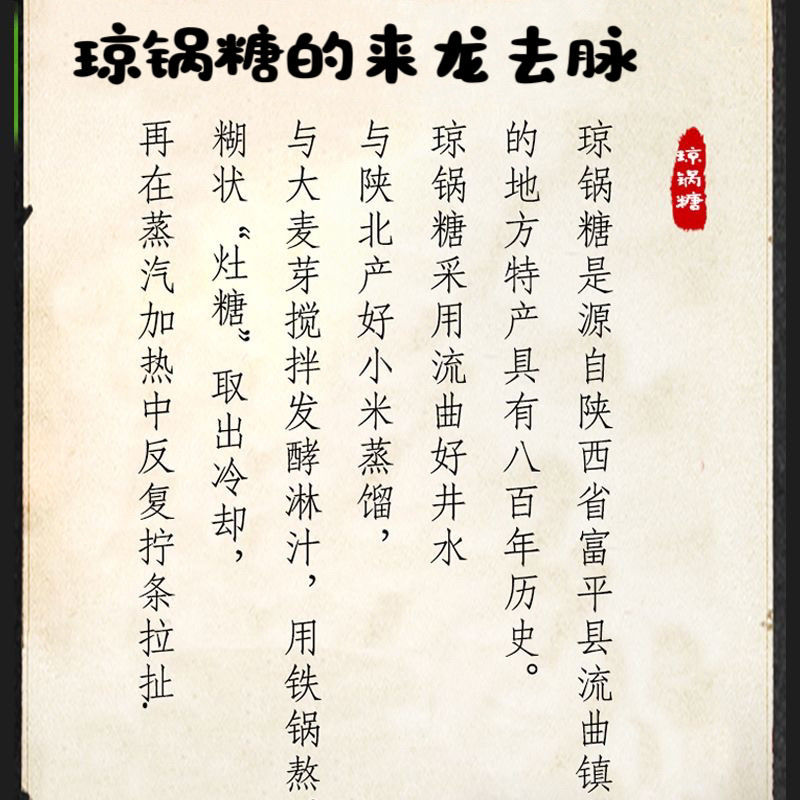 琼锅糖的来龙去脉
琼锅糖
琼锅糖是源自陕西省富平县流曲镇
的地方特产具有八百年历史。
琼锅糖采用流曲好井水
与陕北产好小米蒸馏，
与大麦芽搅拌发酵淋汁，用铁锅熬
糊状“灶糖”取出冷却，
再在蒸汽加热中反复拧条拉扯.